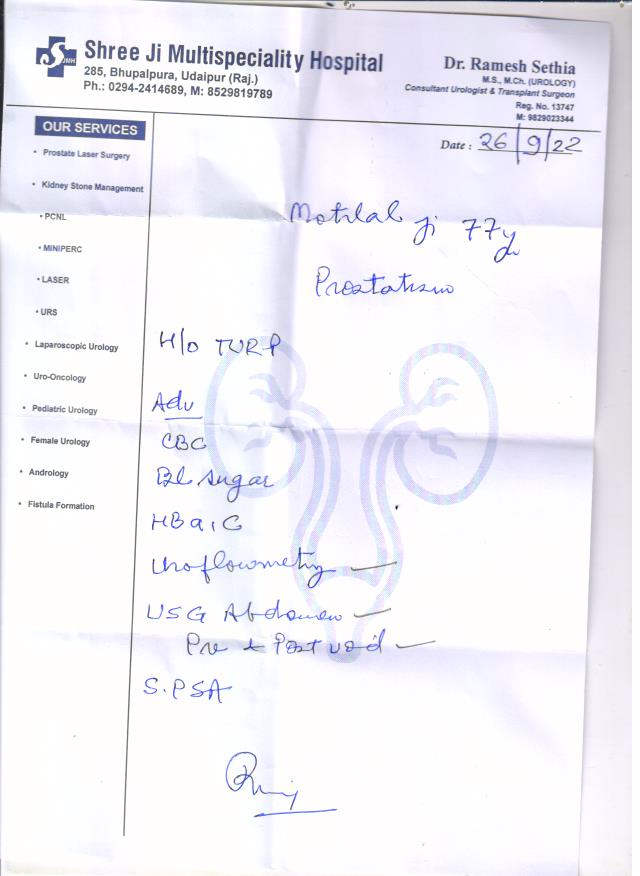 SJMH
Shree Ji Multispeciality Hospital
285, Bhupalpura, Udaipur (Raj.)
Ph.: 0294-2414689, M: 8529819789
Dr. Ramesh Sethia
M.S., M.Ch. (UROLOGY)
Consultant Urologist & Transplant Surgeon
Reg. No. 13747
M: 9829023344
Date : 26/9/22
OUR SERVICES
• Prostate Laser Surgery
• Kidney Stone Management
• PCNL
• MINIPERC
• LASER
• URS
• Laparoscopic Urology
• Uro-Oncology
• Pediatric Urology
• Female Urology
• Andrology
• Fistula Formation
Motilal ji 77y
Prostatism
H/o TURP
Adv
CBC
Bl sugar
HBa1C
Uroflowmetry
USG Abdomen
Pre + Post void
S.PSA